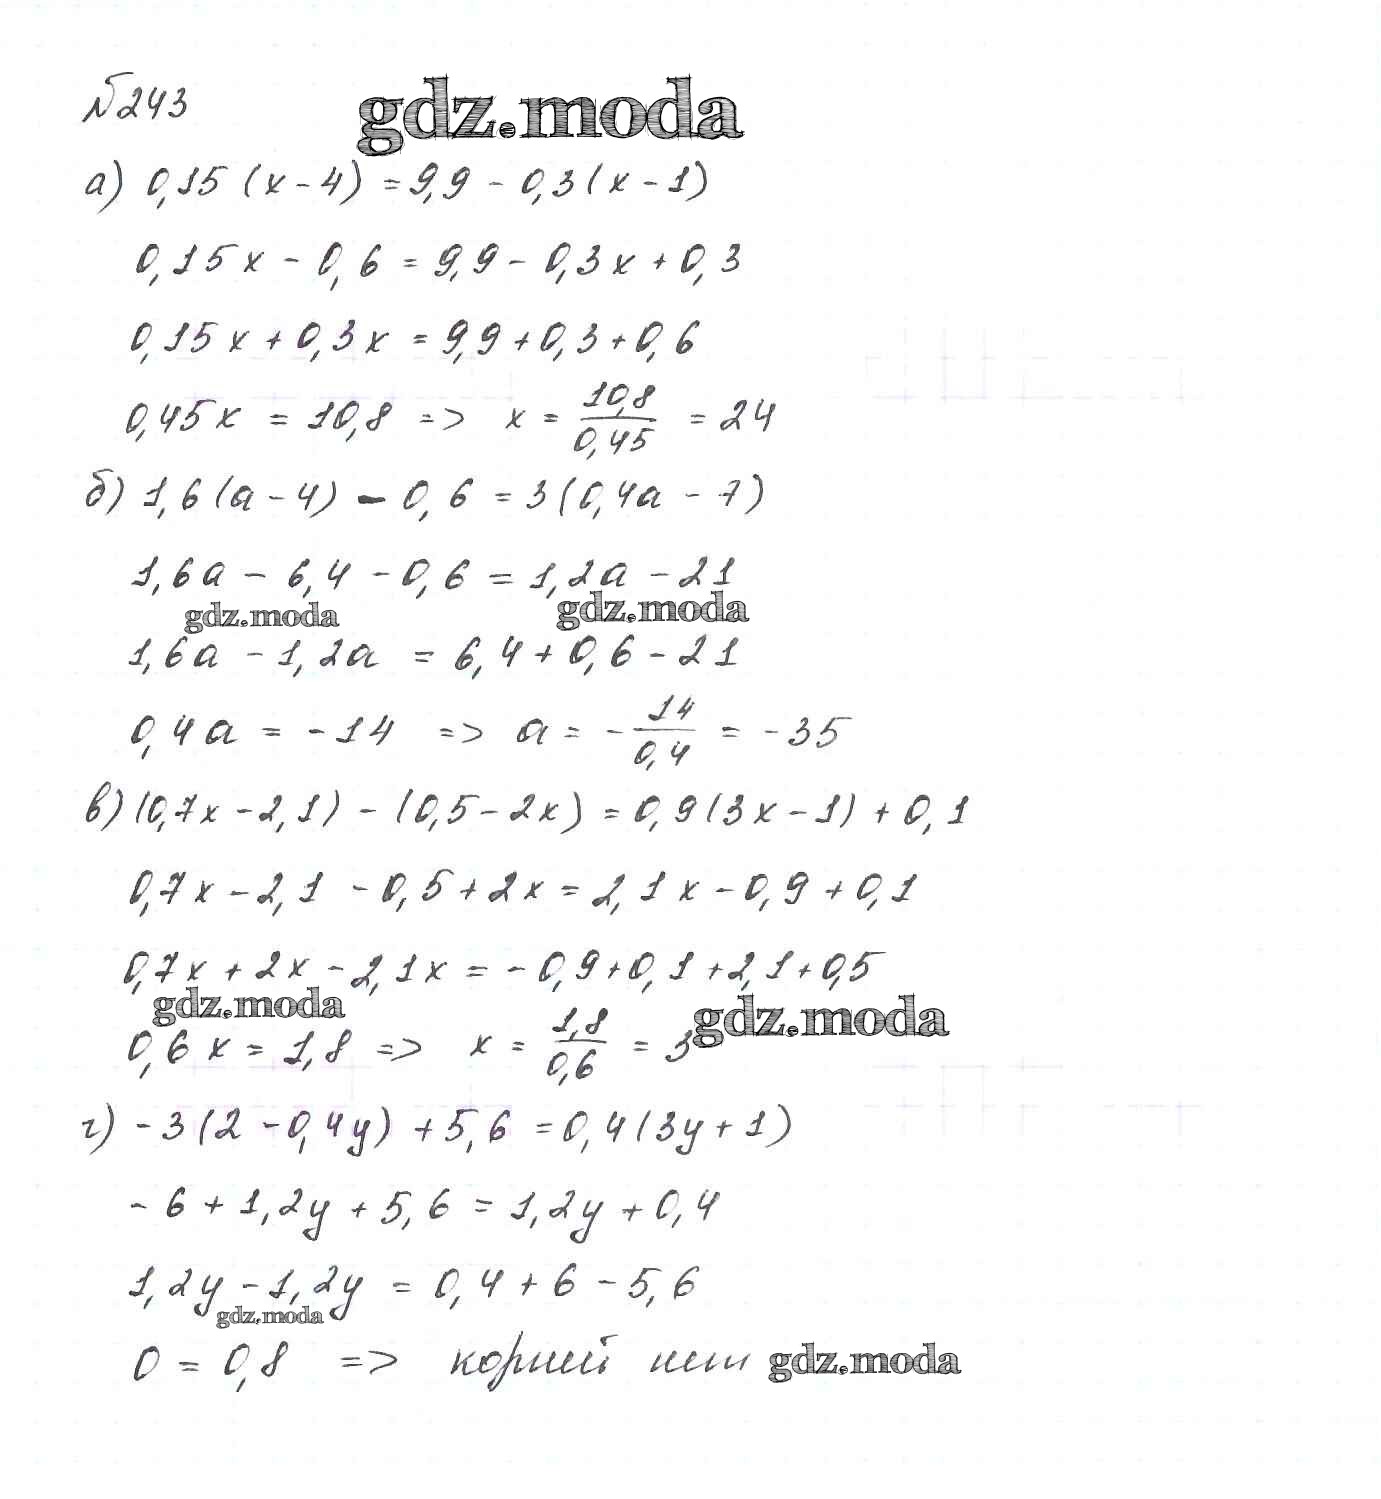 №243 gdz.moda
а) 0,15 (x - 4) = 9,9 - 0,3 (x - 1)
0,15x - 0,6 = 9,9 - 0,3x + 0,3
0,15x + 0,3x = 9,9 + 0,3 + 0,6
0,45x = 10,8 => x = 10,8/0,45 = 24
б) 1,6 (a - 4) - 0,6 = 3 (0,4a - 7)
1,6a - 6,4 - 0,6 = 1,2a - 21
gdz.moda gdz.moda
1,6a - 1,2a = 6,4 + 0,6 - 21
0,4a = -14 => a = - 14/0,4 = -35
в) (0,7x - 2,1) - (0,5 - 2x) = 0,9 (3x - 1) + 0,1
0,7x - 2,1 - 0,5 + 2x = 2,1x - 0,9 + 0,1
0,7x + 2x - 2,1x = - 0,9 + 0,1 + 2,1 + 0,5
gdz.moda gdz.moda
0,6x = 1,8 => x = 1,8/0,6 = 3
г) -3 (2 - 0,4y) + 5,6 = 0,4 (3y + 1)
-6 + 1,2y + 5,6 = 1,2y + 0,4
1,2y - 1,2y = 0,4 + 6 - 5,6
gdz.moda
0 = 0,8 => корней нет gdz.moda